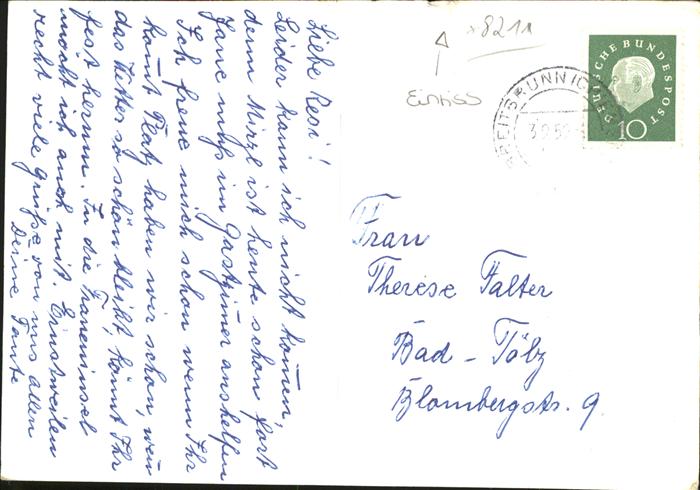 Liebe Resi!
Leider kann ich nicht kommen,
denn Mirzl ist heute schon fort
Jane muß im Gastzimer aushelfen
Ich freue mich schon wenn Ihr
komt Platz haben wir schon, wen
das Wetter so schön bleibt, könnt Ihr
fest herum. In die Fraueninsel
möcht ich auch mit. Einstweilen
recht viele Grüße von uns allen
Deine Tante
8211
Einriss
BREITBRUNN (C
3.9.59
DEUTSCHE BUNDESPOST
10
Frau
Therese Falter
Bad - Tölz
Blombergstr. 9.